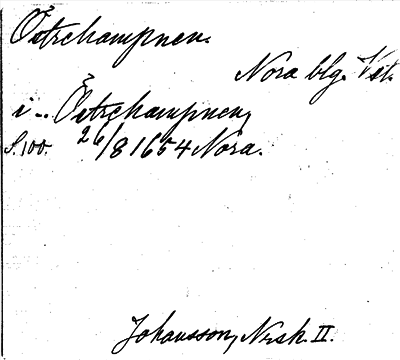 Öitzchampnen.
Nora blg. Vst.
i .. Öitzchampnen,
S. 100. 26/8 1654 Nora.
Johansson, Nrsk. II.